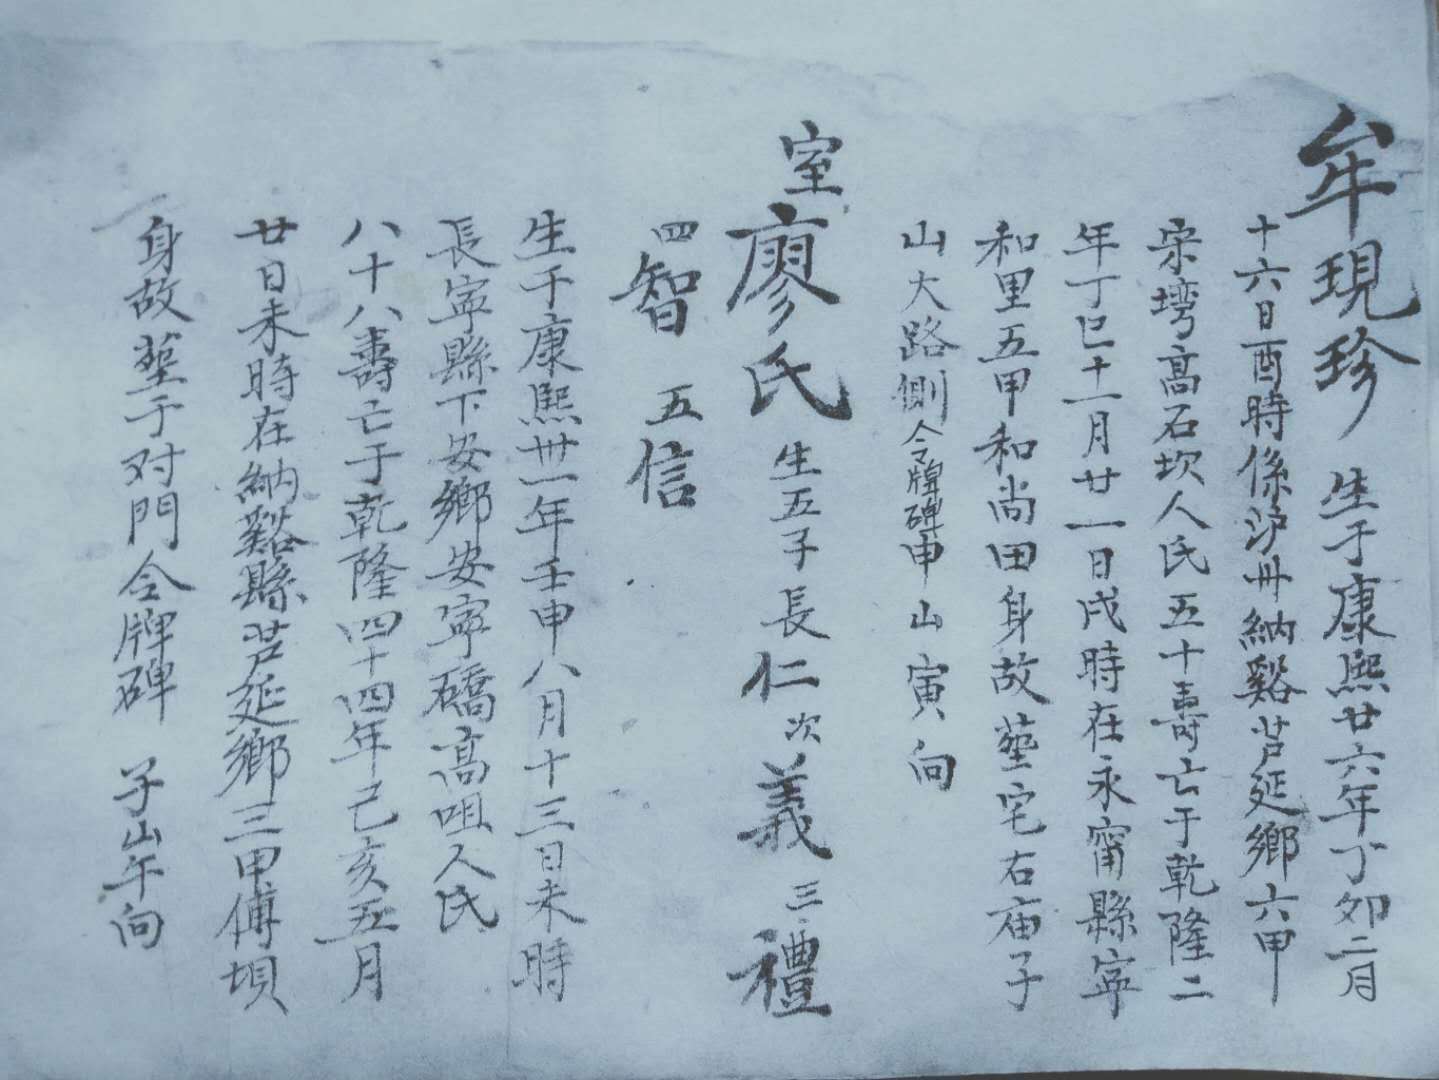 牟現珍 生于康熙廿六年丁卯二月
十六日酉時係沪州納谿芦延鄉六甲
宋塆高石坎人氏五十壽亡于乾隆二
年丁巳十一月廿一日戌時在永甯縣寧
和里五甲和尚田身故塟宅右庙子
山大路側令牌碑申山寅向
室廖氏生五子長仁次義三禮
四智五信
生于康熙卅一年壬申八月十三日未時
長寧縣下安鄉安寧礄高咀人氏
八十八壽亡于乾隆四十四年己亥五月
廿日未時在納谿縣芦延鄉三甲傅垻
身故塟于对門令牌碑 子山午向